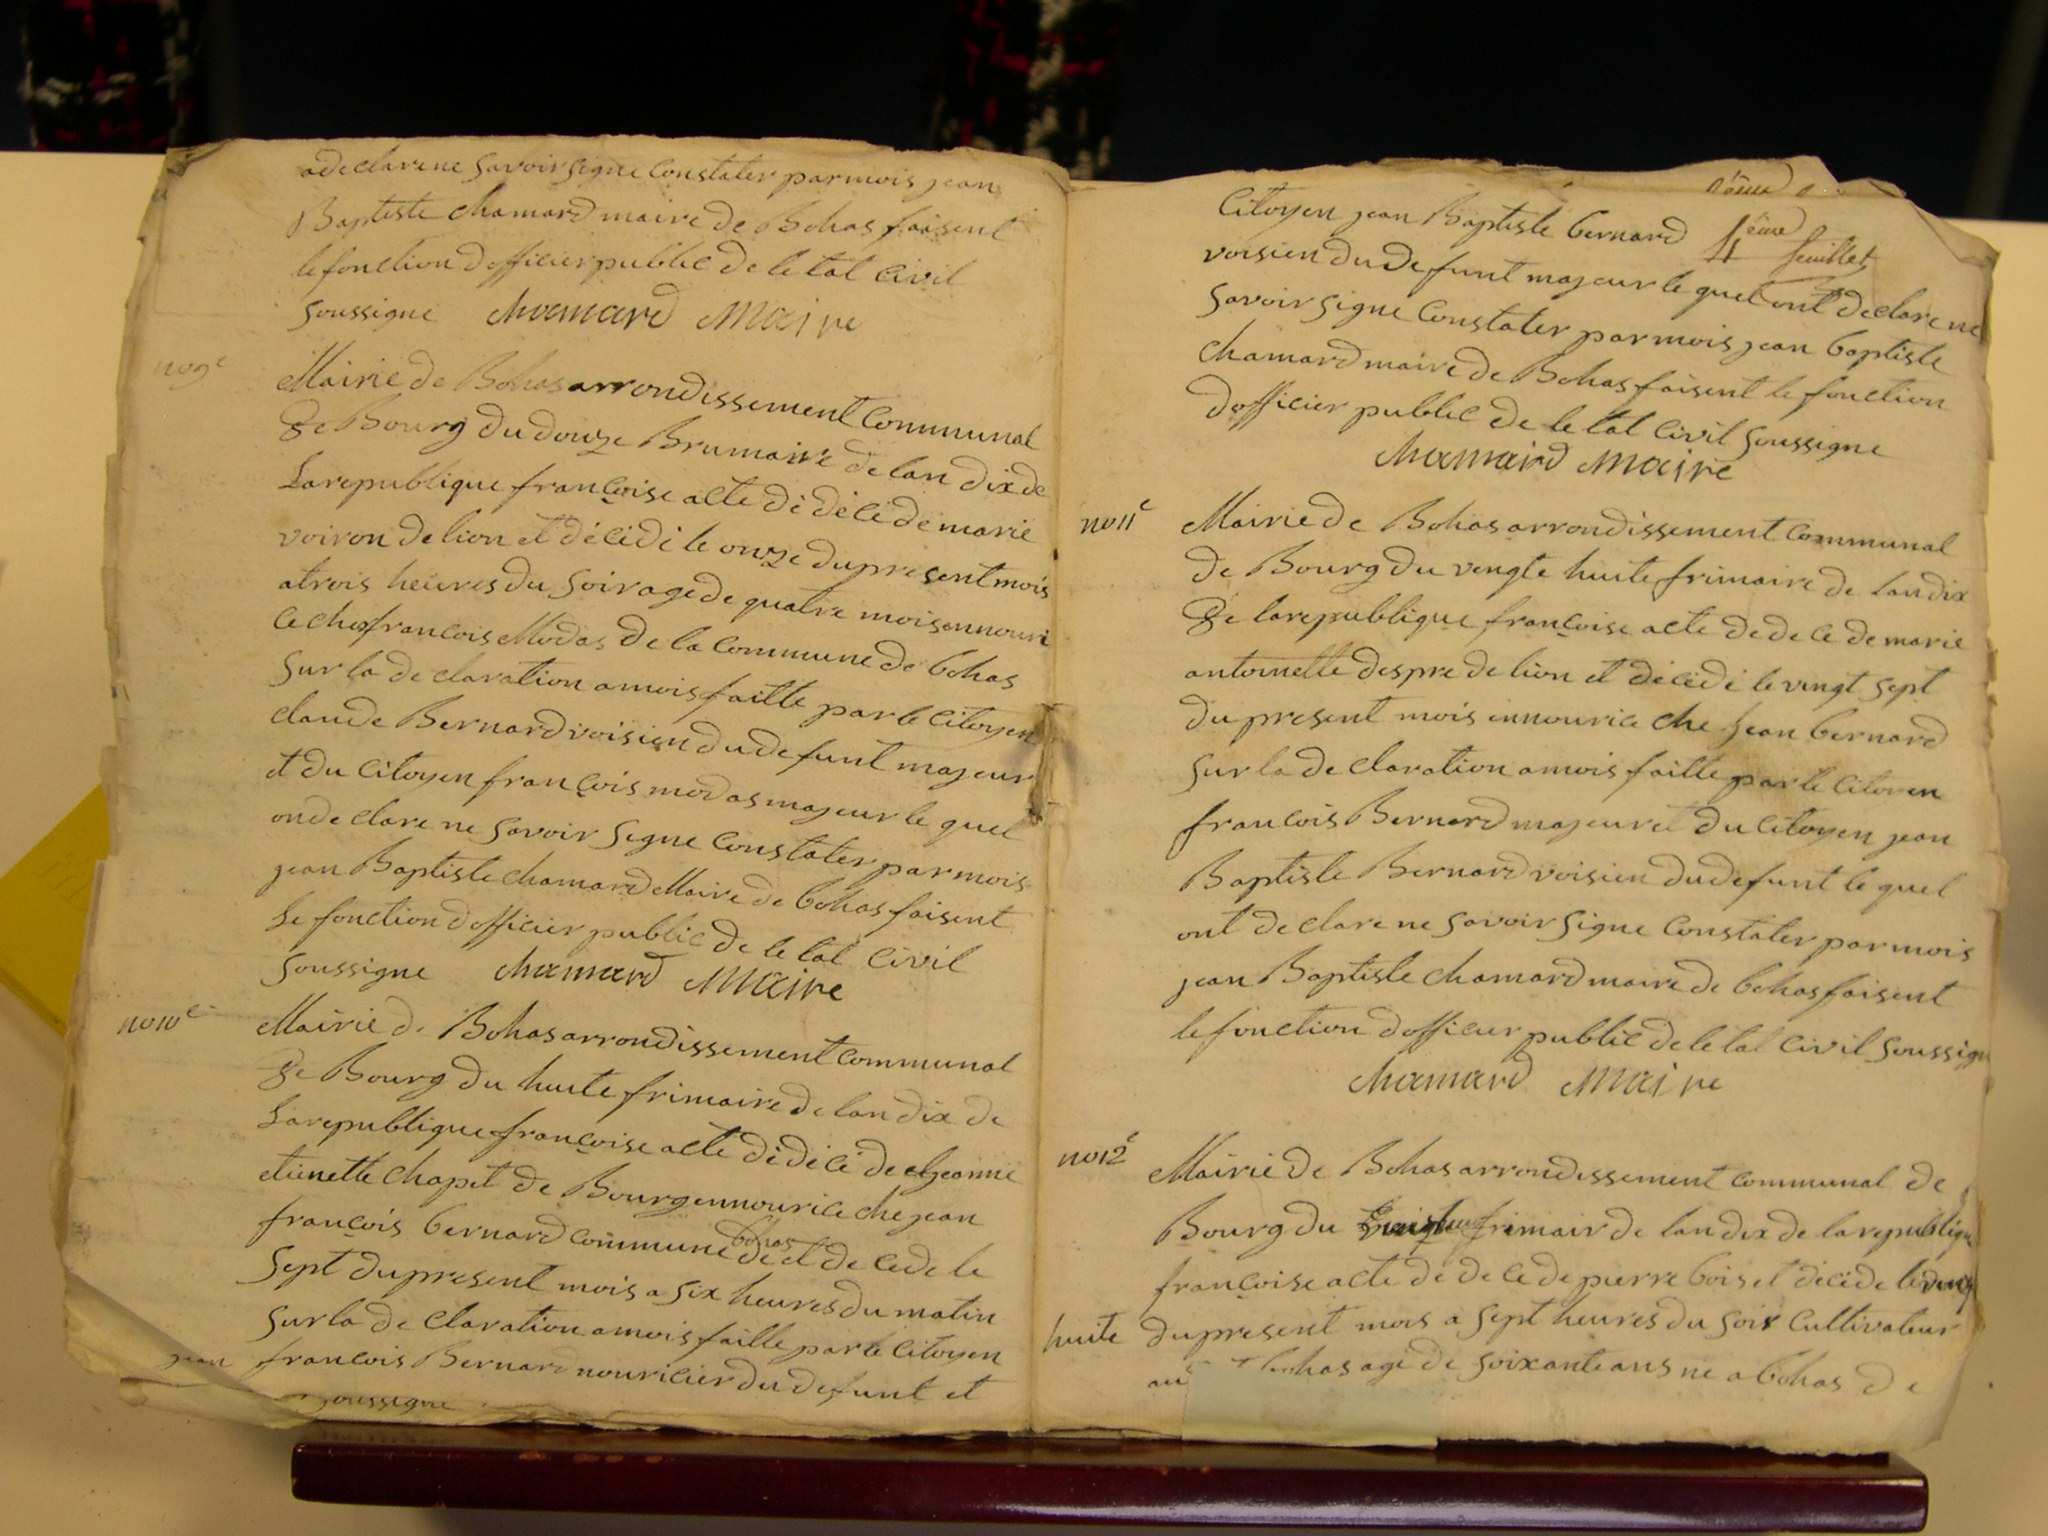 adeclare ne savoir signe constater par mois jean
Baptiste chamard maire de Bohas faisent
le fonction dofficier public de le tat civil
soussigne chamard maire
no 9e
Mairie de Bohas arrondissement communal
de Bourg du douze Brumaire de lan dix de
La republique françoise acte de décé de marie
voiron de lion et décédé le onze du present mois
a trois heures du soir age de quatre mois ennouri
ce ches francois Modas de la commune de bohas
sur la de claration a mois faitte par le citoyen
claude Bernard voisien du defunt majeur
et du citoyen françois modas majeur le quel
on de clare ne savoir signe constater par mois
jean Baptiste chamard Maire de bohas faisent
Le fonction dofficier public de le tat civil
soussigne chamard maire
no 10e
Mairie de Bohas arrondissement communal
de Bourg du huite frimaire de lan dix de
La republique françoise acte dé décé de jeanne
etienette chapit de Bourg ennourice ché jean
françois bernard commune de bohas et de cede le
sept du present mois a six heures du matin
sur la de claration a mois faitte par le citoyen
jean francois Bernard nouricier du defunt et
soussigne
Citoyen jean Baptiste bernard
4ème feuillet
voisien du defunt majeur le quel ont declare ne
savoir signe constater par mois jean baptiste
chamard maire de Bohas faisent le fonction
dofficier public de le tat civil soussigne
chamard maire
no 11e
Mairie de Bohas arrondissement communal
de Bourg du vengte huite frimaire de lan dix
de la republique françoise acte de de ce de marie
antoinette despre de lion et décédé le vingt sept
du present mois ennourice che jean bernard
sur la de claration a mois faitte par le citoyen
francois Bernard majeur et du citoyen jean
Baptiste Bernard voisien du defunt le quel
ont de clare ne savoir signe constater par mois
jean Baptiste chamard maire de bohas faisent
le fonction dofficier public de le tat civil soussigne
chamard maire
no 12e
Mairie de Bohas arrondissement communal de
Bourg du frimair de lan dix de la republique
françoise acte de de ce de pierre bois et décéde le ving
huite du present mois a sept heures du soir cultivateur
au bohas agé de soixante ans ne a bohas de